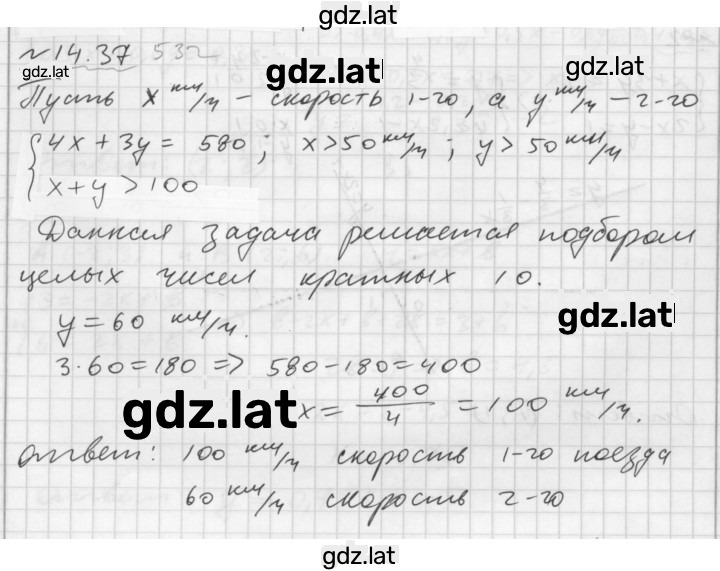 gdz.lat
№14.37 532
gdz.lat
gdz.lat
Пусть x км/ч – скорость 1-го, а y км/ч – 2-го
4x + 3y = 580; x>50 км/ч; y>50 км/ч
x+y>100
Данная задача решается подбором
целых чисел кратных 10.
y = 60 км/ч.
gdz.lat
3·60=180 => 580-180=400
gdz.lat
x = 400/4 = 100 км/ч.
ответ: 100 км/ч скорость 1-го поезда
60 км/ч скорость 2-го
gdz.lat